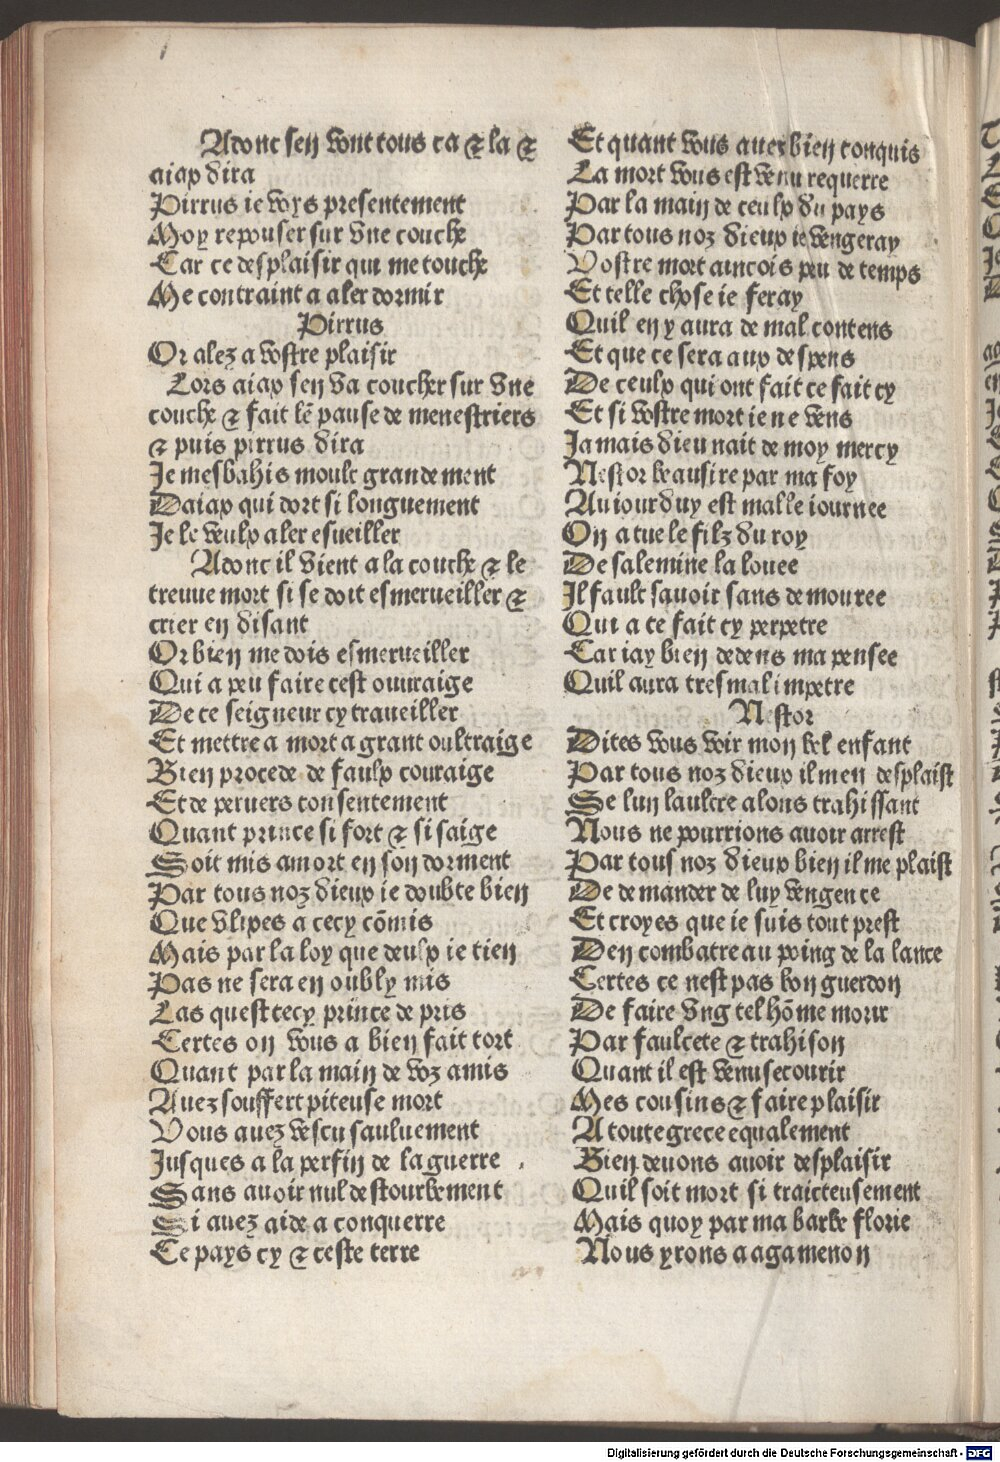 Adonc sen vont tous ca & la &
aiax dira
Pirrus ie voys presentement
Moy repouser sur vne couche
Car ce desplaisir qui me touche
Me contraint a aler dormir
Pirrus
Or alez a vostre plaisir
Lors aiax sen va coucher sur vne
couche & fait lē pause de menestriers
& puis pirrus dira
Je mesbahis moult grandement
Daiax qui dort si longuement
Je le veulx aler esueiller
Adonc il vient a la couche & le
treuue mort si se doit esmerueiller &
crier en disant
Or bien me dois esmerueiller
Qui a peu faire cest ouuraige
De ce seigneur cy traueiller
Et mettre a mort a grant oultraige
Bien procede de faulx couraige
Et de peruers consentement
Quant prince si fort & si saige
Soit mis a mort en son dorment
Par tous noz dieux ie doubte bien
Que vlixes a cecy cōmis
Mais par la loy que deulx ie tien
Pas ne sera en oubly mis
Las quest cecy prince de pris
Certes on vous a bien fait tort
Quant par la main de voz amis
Auez souffert piteuse mort
Vous auez vescu sauluement
Jusques a la perfin de la guerre
Sans auoir nul destourbement
Si auez aide a conquerre
Ce pays cy & ceste terre
Et quant vous auez bien conquis
La mort vous est venu requerre
Par la main de ceulx du pays
Par tous noz dieux ie vengeray
Vostre mort aincois peu de temps
Et telle chose ie feray
Quil en y aura de mal contens
Et que ce sera aux despens
De ceulx qui ont fait ce fait cy
Et si vostre mort ie ne vens
Jamais dieu nait de moy mercy
Nestor beausire par ma foy
Auiourduy est malle iournee
On a tue le filz du roy
De salemine la louee
Il fault sauoir sans demouree
Qui a ce fait cy perpetre
Car iay bien dedens ma pensee
Quil aura tresmal impetre
Nestor
Dites vous voir mon bel enfant
Par tous noz dieux il men desplaist
Se lun laultre alons trahissant
Nous ne pourrions auoir arrest
Par tous noz dieux bien il me plaist
De demander de luy vengence
Et croyes que ie suis tout prest
Den combatre au poing de la lance
Certes ce nest pas bon guerdon
De faire vng tel hōme morir
Par faulcete & trahison
Quant il est venu secourir
Mes cousins & faire plaisir
A toute grece equalement
Bien deuons auoir desplaisir
Quil soit mort si traicteusement
Mais quoy par ma barbe florie
Nous yrons a agamenon
Digitalisierung gefördert durch die Deutsche Forschungsgemeinschaft - DFG